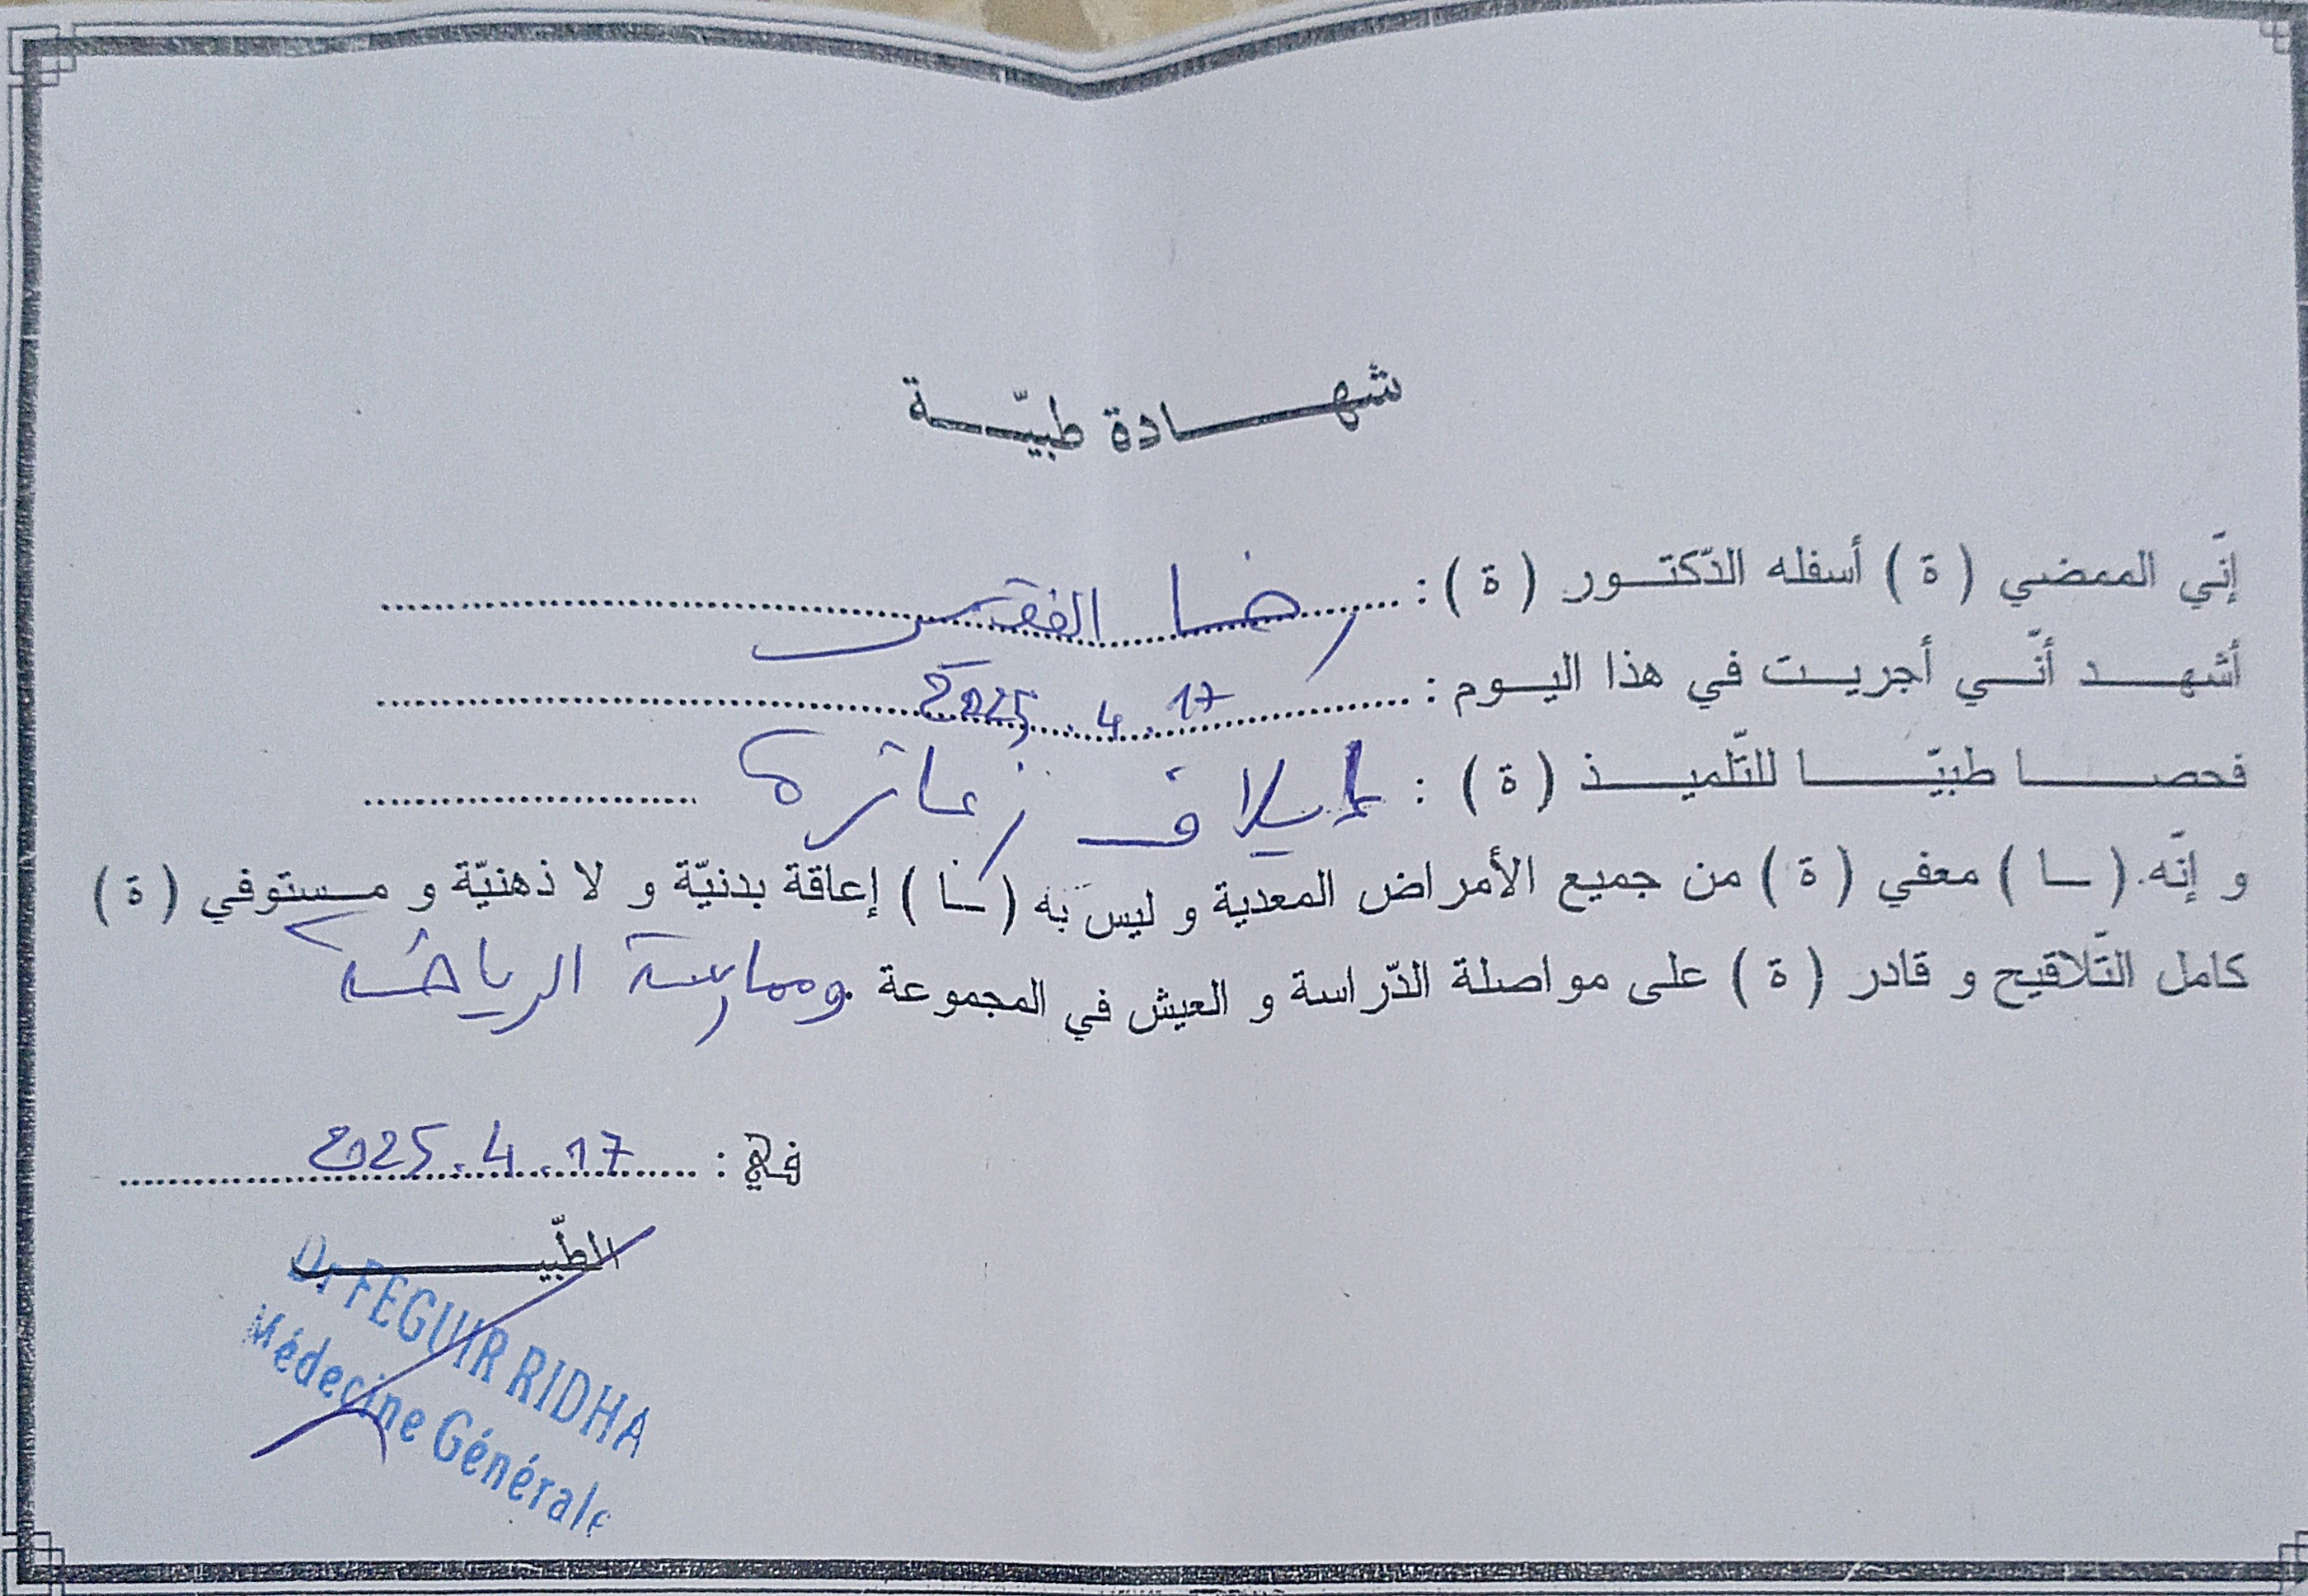 شهادة طبيّة
إنّي الممضي ( ة ) أسفله الدّكتور ( ة ) : رضا الفقير
أشهد أنّي أجريت في هذا اليوم : 17 . 4 . 2025
فحصا طبيّا للتّلميذ ( ة ) : إيلاف زعاترة
و إنّه ( ـا ) معفي ( ة ) من جميع الأمراض المعدية و ليس به ( ـا ) إعاقة بدنيّة و لا ذهنيّة و مستوفي ( ة )
كامل التّلاقيح و قادر ( ة ) على مواصلة الدّراسة و العيش في المجموعة . وممارسة الرياضة
في : 17 . 4 . 2025
الطّبيب
Dr FEGUIR RIDHA
Médecine Générale